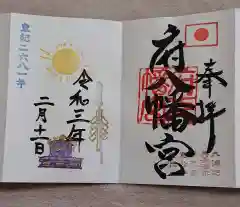 奉拝
府八幡宮
皇紀二六八一年
令和三年
二月十一日